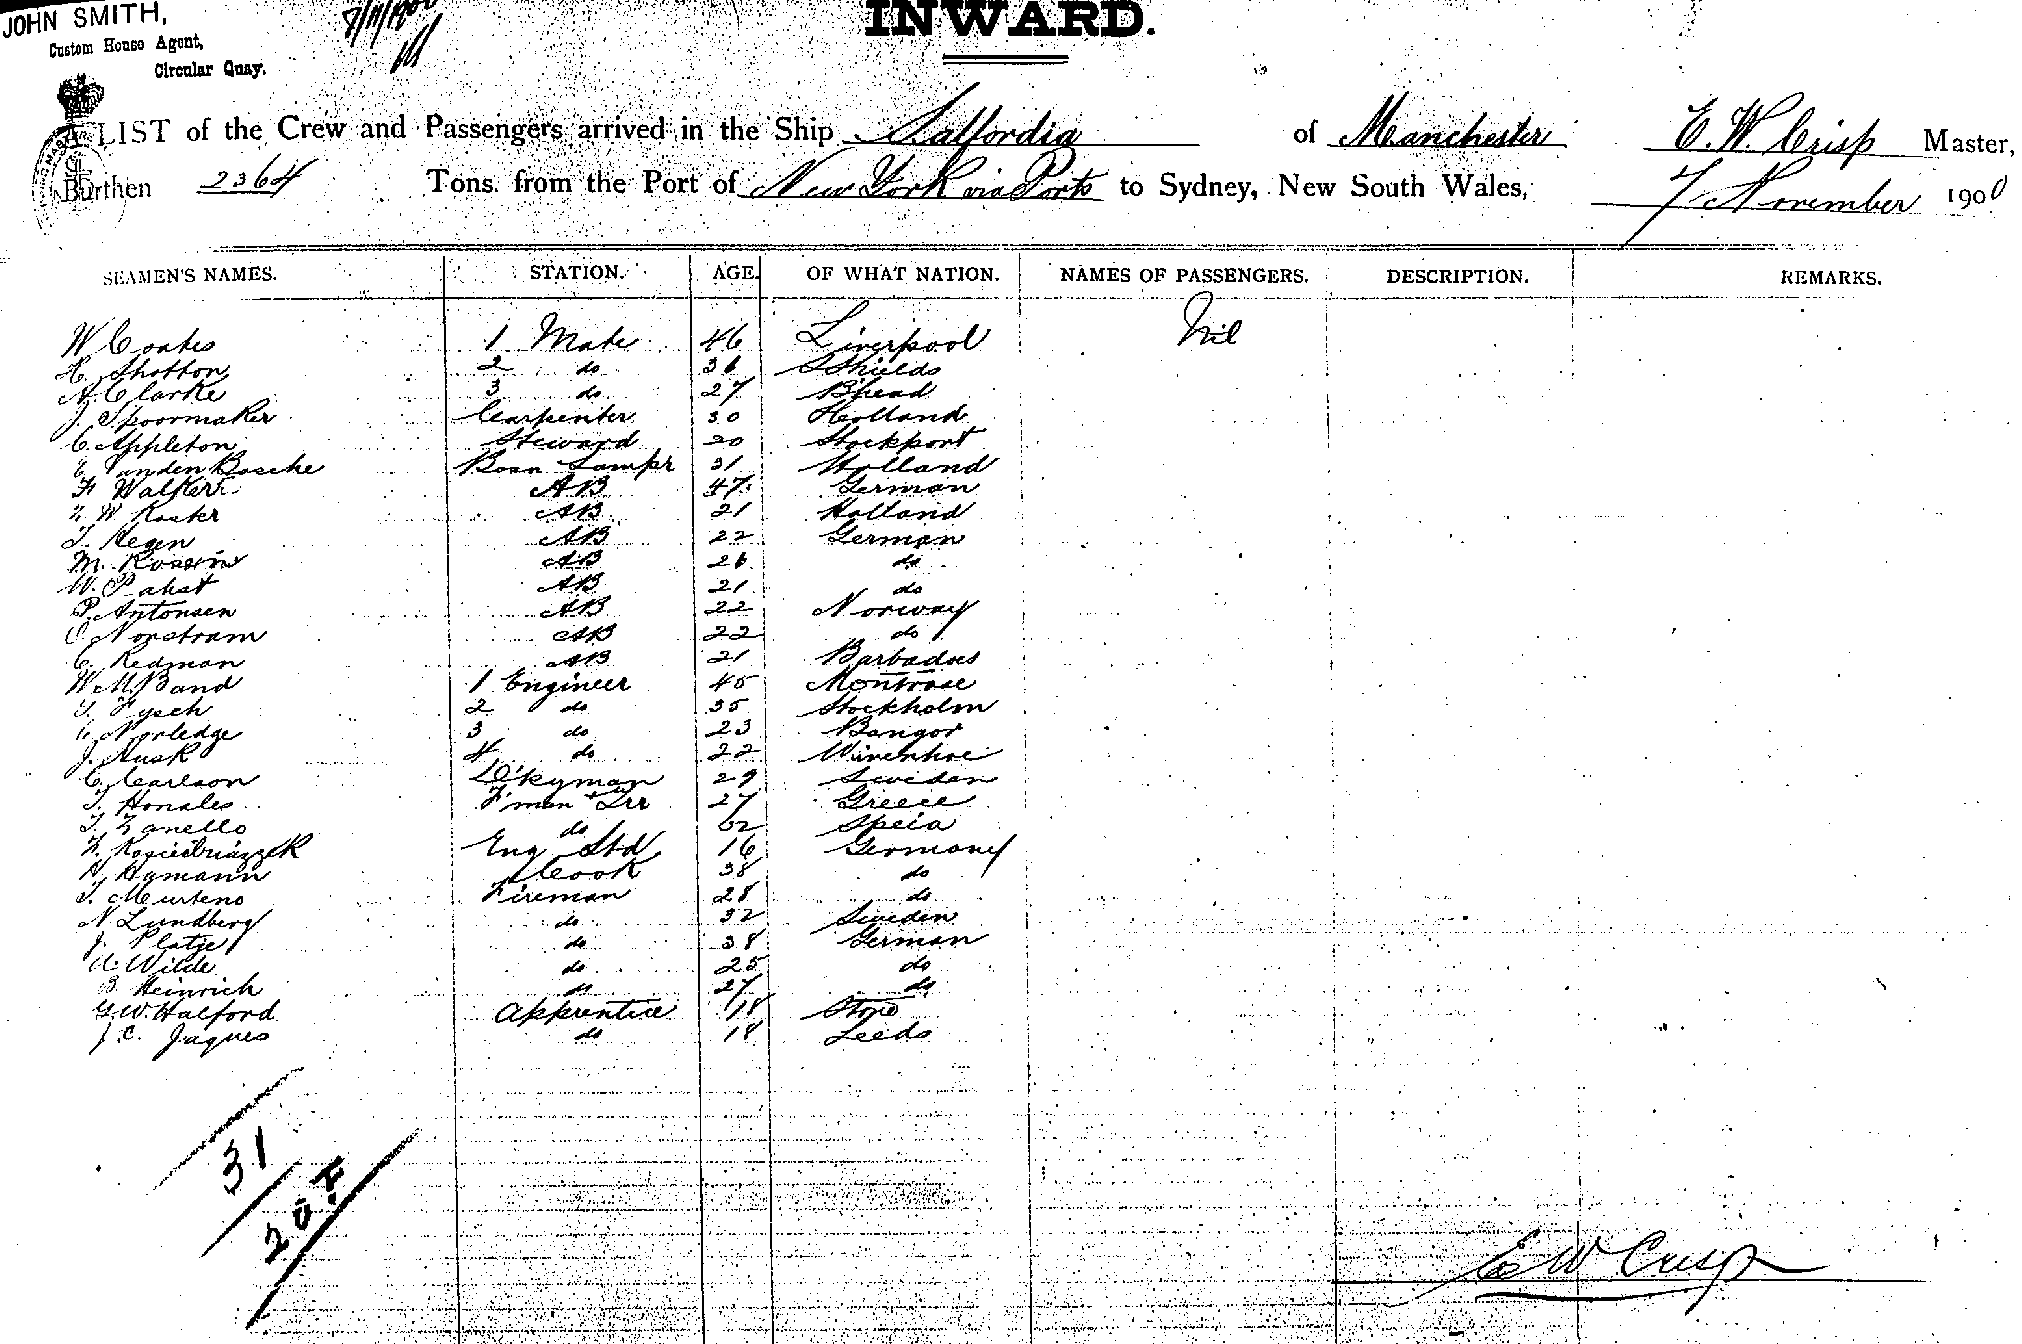 JOHN SMITH,
Custom House Agent,
Circular Quay.
8/11/1900
INWARD.
A LIST of the Crew and Passengers arrived in the Ship Salfordia of Manchester E. W. Crisp Master,
Burthen 2364 Tons from the Port of New York via Ports to Sydney, New South Wales, 7 November 1900
SEAMEN'S NAMES. STATION. AGE. OF WHAT NATION. NAMES OF PASSENGERS. DESCRIPTION. REMARKS.
W Coates 1 Mate 46 Liverpool Nil
H. Shotton 2 do 36 SShields
A. Clarke 3 do 27 B'head
J. Spoormaker Carpenter 30 Holland
C. Appleton Steward 20 Stockport
E. VandenBosche Bosn Lampr 31 Holland
F Walker AB 47 German
W Koster AB 21 Holland
T. Hegen AB 22 German
M. Rossin AB 26 do
W. Pabst AB 21 do
P. Antonsen AB 22 Norway
O Norstram AB 22 do
C. Redman AB 21 Barbados
W. M. Band 1 Engineer 45 Montrose
T. Fysch 2 do 35 Stockholm
C Norledge 3 do 23 Bangor
J. Husk 4 do 22 Wivenhoe
C. Carlson D'kyman 29 Sweden
T. Honales F'man + Trr 27 Greece
T. Zanello do Speia
F. Eng Std 16 Germany
H Hamann Cook 38 do
T. Meurteno Fireman 28 do
N Lundberg do 32 Sweden
J. Platje do 38 German
A. Wilde do 25 do
B. Heinrich do 27 do
G. W. Halford Apprentice 18
J. C. Jaques do 18 Leeds
31
20.F
E W Crisp